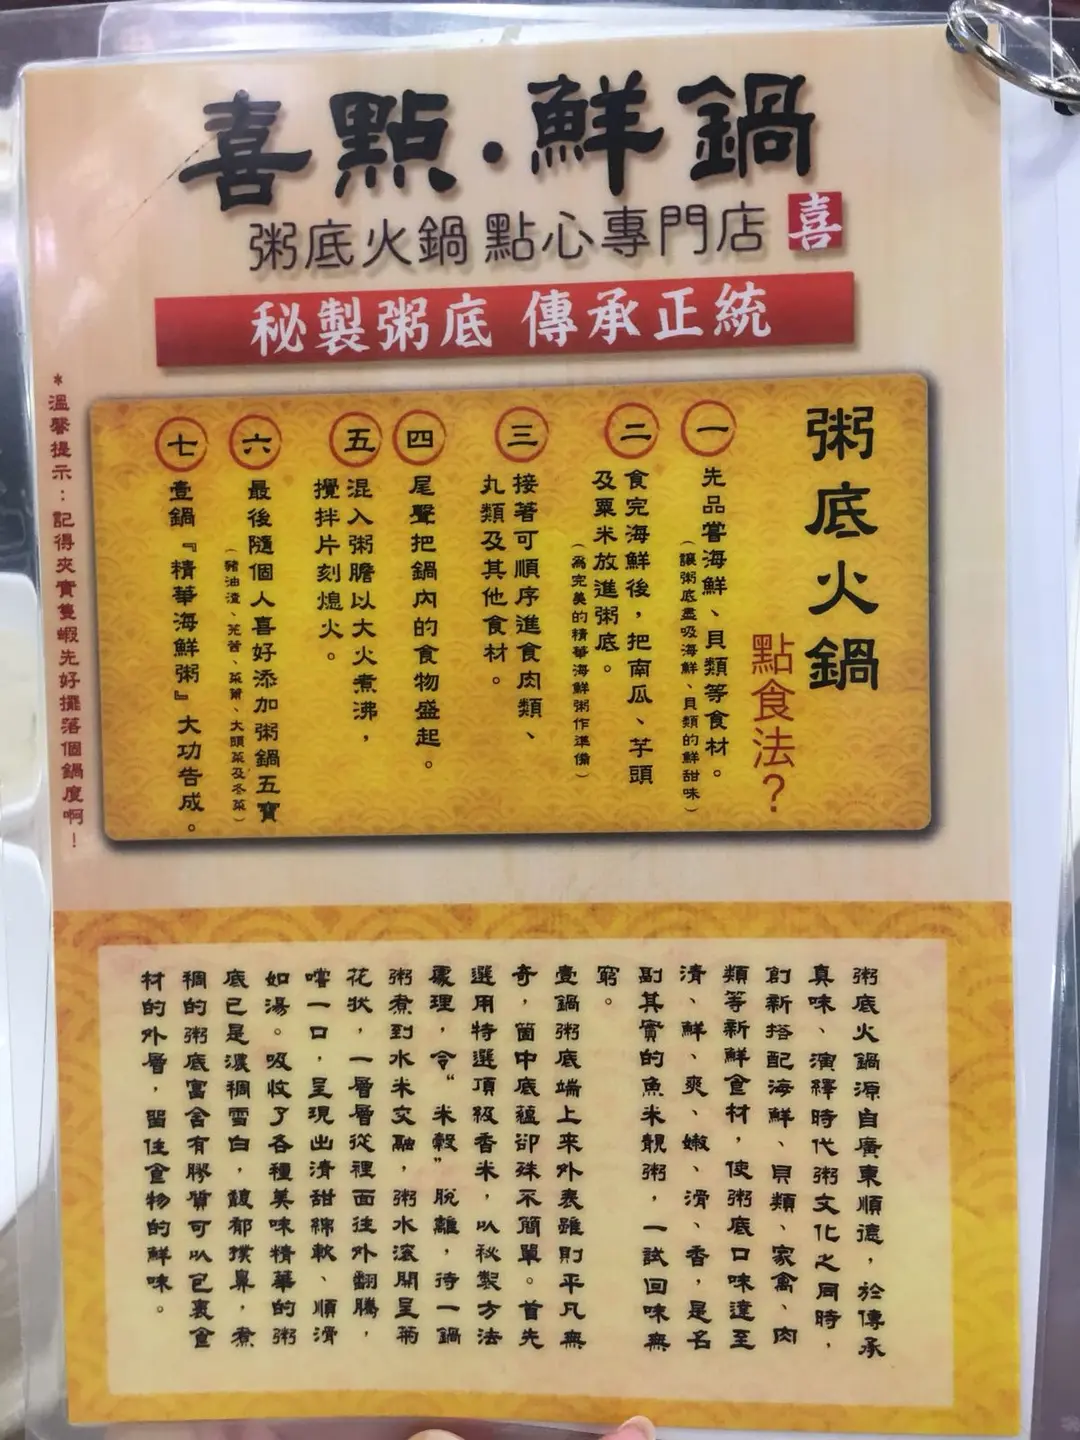 喜點·鮮鍋
粥底火鍋 點心專門店
喜
秘製粥底 傳承正統
粥底火鍋
點食法？
一
先品嘗海鮮、貝類等食材。
（讓粥底盡吸海鮮、貝類的鮮甜味）
二
食完海鮮後，把南瓜、芋頭
及粟米放進粥底。
（為完美的精華海鮮粥作準備）
三
接著可順序進食肉類、
丸類及其他食材。
四
尾聲把鍋內的食物盛起。
五
混入粥膽以大火煮沸，
攪拌片刻熄火。
六
最後隨個人喜好添加粥鍋五寶
（豬油渣、芫茜、菜脯、大頭菜及冬菜）
七
壹鍋『精華海鮮粥』大功告成。
*溫馨提示：記得夾實隻蝦先好擺落個鍋度啊！
粥底火鍋源自廣東順德，於傳承
真味、演繹時代粥文化之同時，
創新搭配海鮮、貝類、家禽、肉
類等新鮮食材，使粥底口味達至
清、鮮、爽、嫩、滑、香，是名
副其實的魚米靚粥，一試回味無
窮。
壹鍋粥底端上來外表雖則平凡無
奇，箇中底蘊卻殊不簡單。首先
選用特選頂級香米，以秘製方法
處理，令“米穀”脫離，待一鍋
粥煮到水米交融，粥水滾開呈菊
花狀，一層層從裡面往外翻騰，
嚐一口，呈現出清甜綿軟、順滑
如湯。吸收了各種美味精華的粥
底已是濃稠雪白，馥郁撲鼻，煮
稠的粥底富含有膠質可以包裹食
材的外層，留住食物的鮮味。